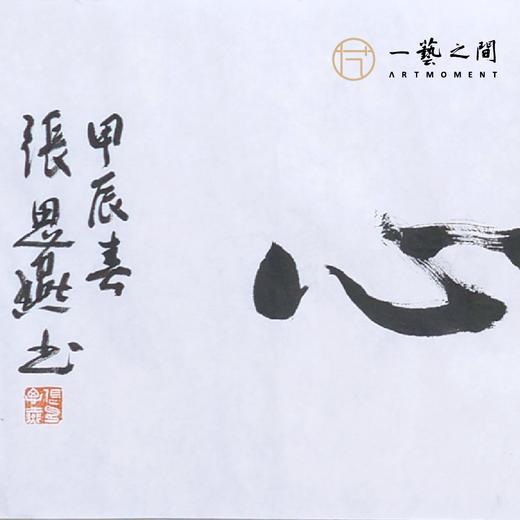 一藝之間
ARTMOMENT
心
甲辰春
張思燕书